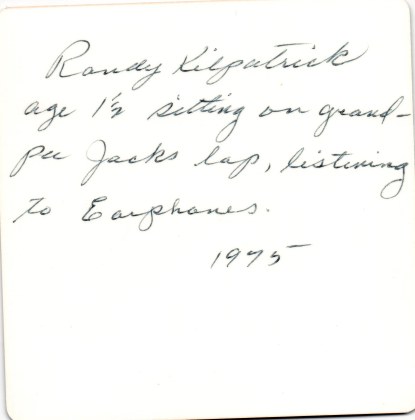 Randy Kilpatrick
age 1½ sitting on grand-
pa Jacks lap, listening
to Earphones.
1975